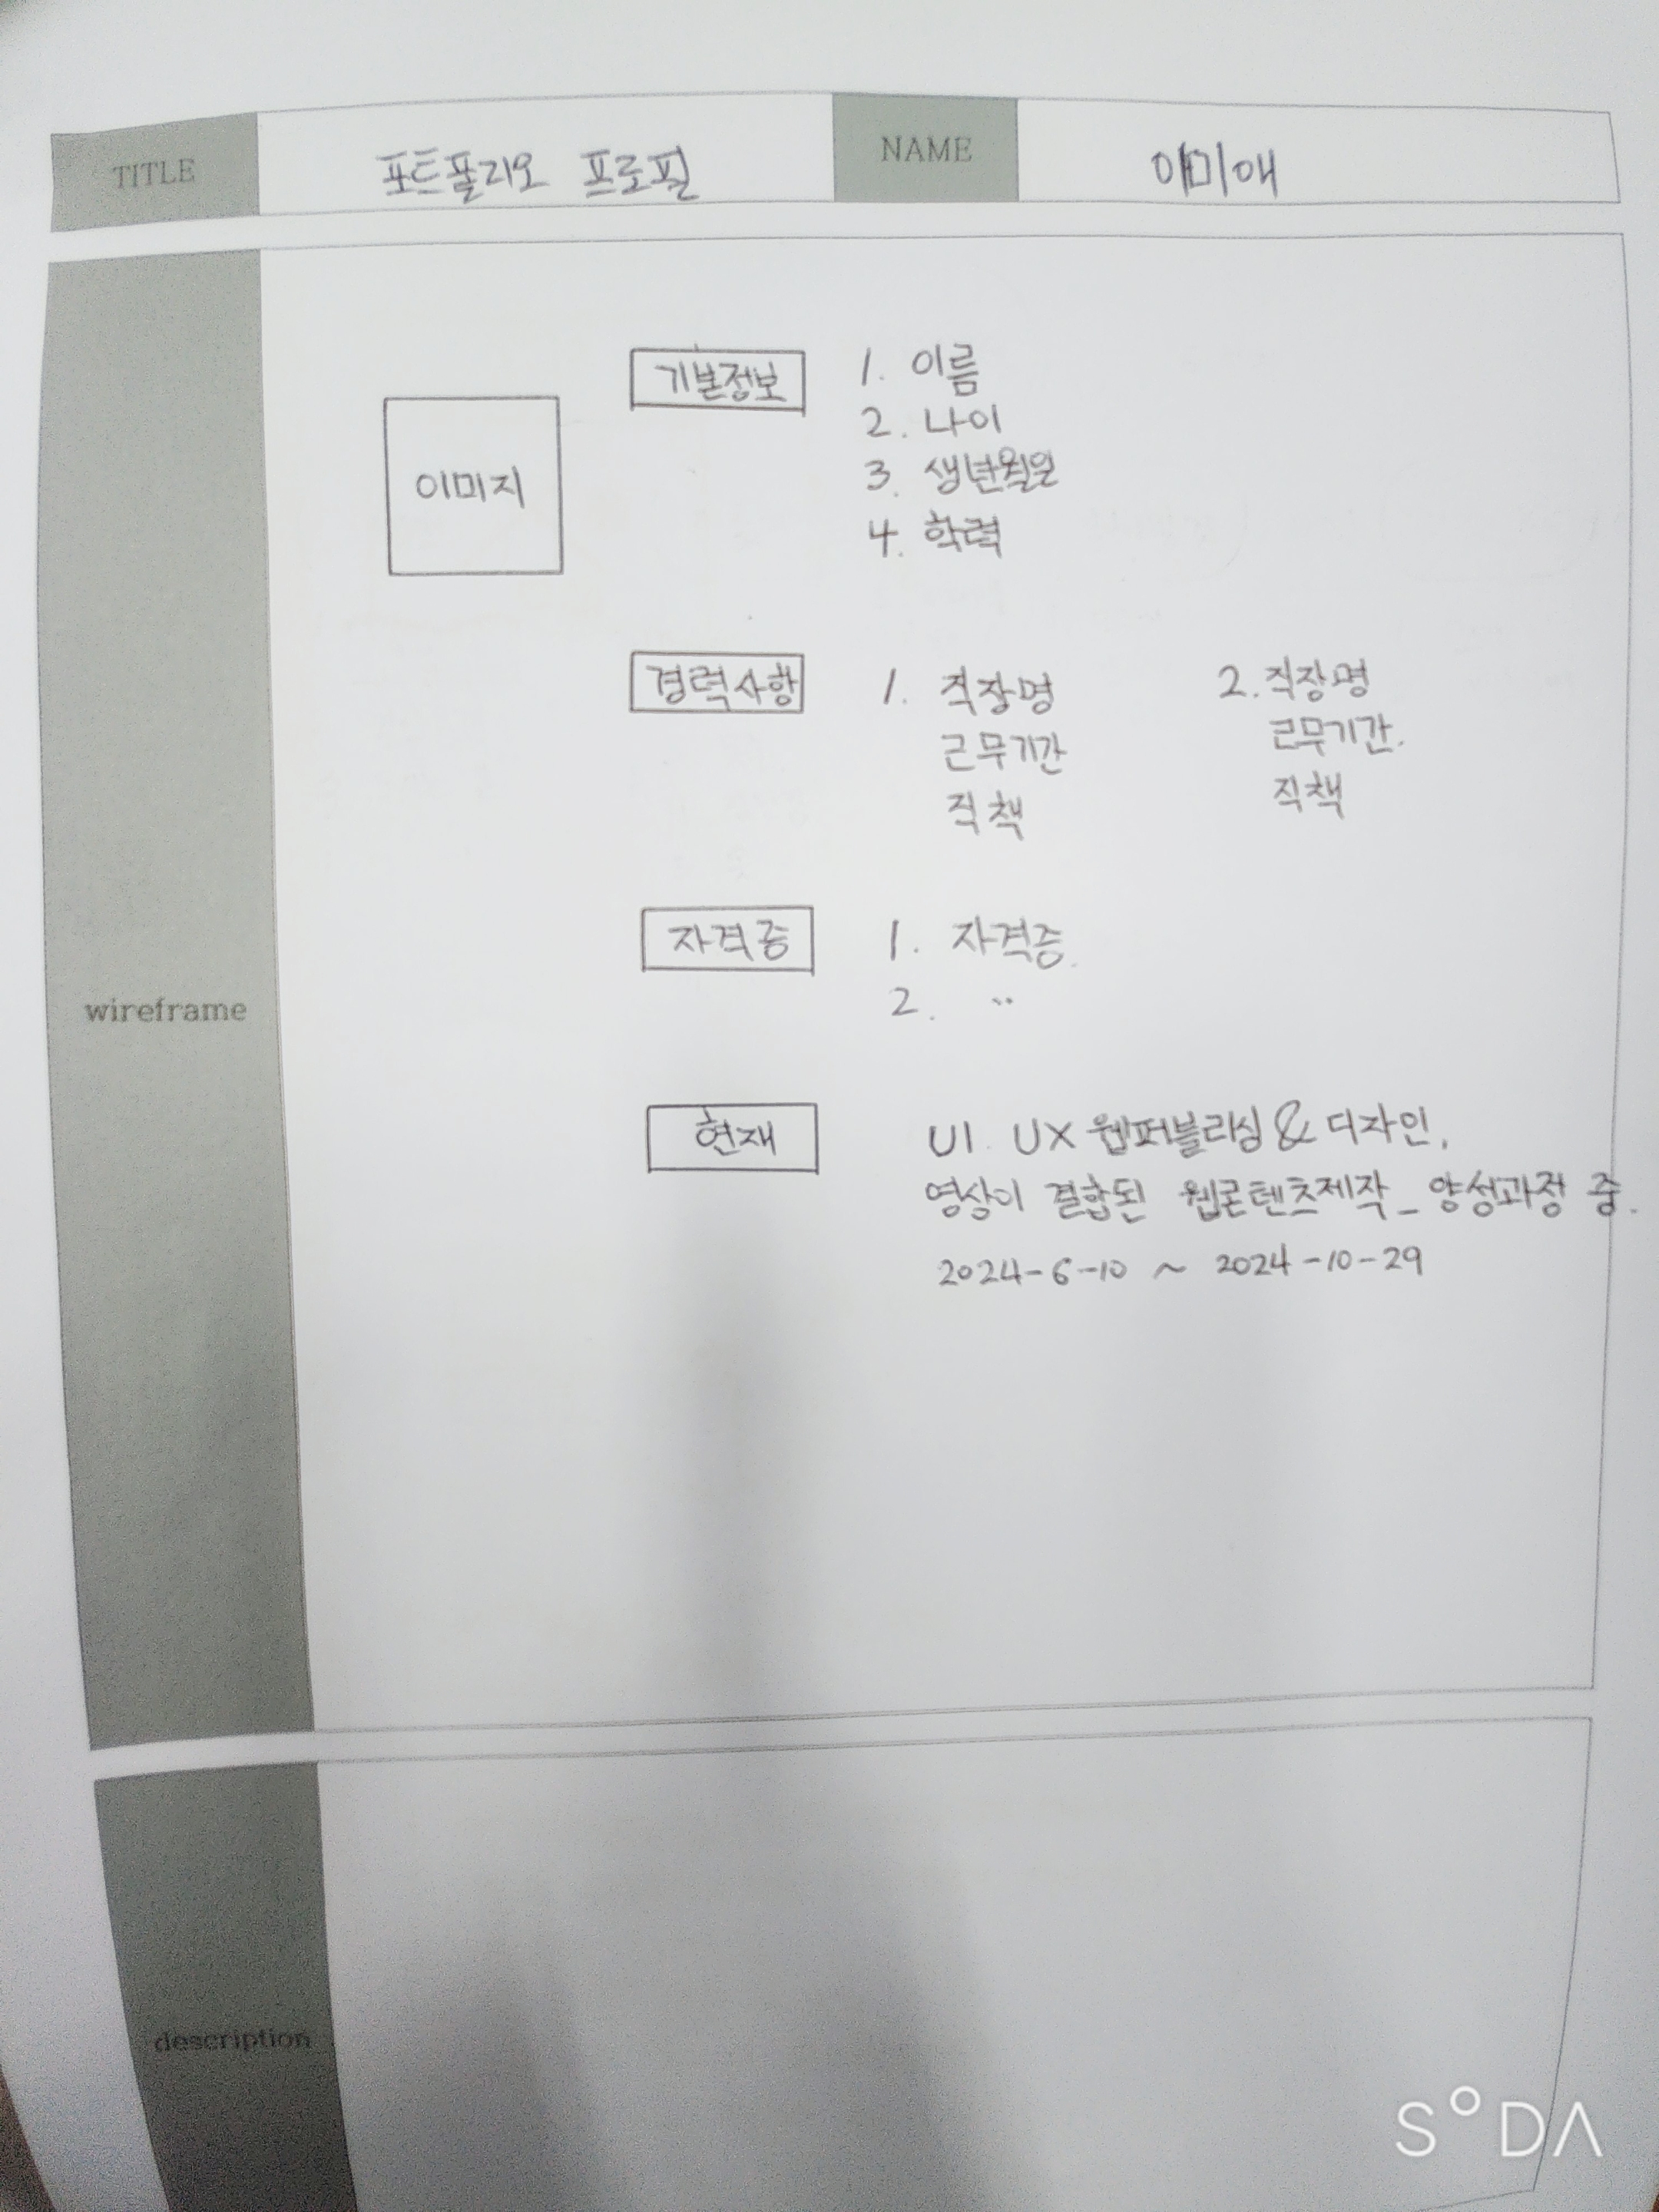 TITLE 포트폴리오 프로필 NAME 이미애
wireframe
이미지
기본정보
1. 이름
2. 나이
3. 생년월일
4. 학력
경력사항
1. 직장명
근무기간
직책
2. 직장명
근무기간.
직책
자격증
1. 자격증.
2. 〃
현재
UI. UX 웹퍼블리싱 & 디자인,
영상이 결합된 웹콘텐츠제작_양성과정 중.
2024-6-10 ~ 2024-10-29
description
SODA